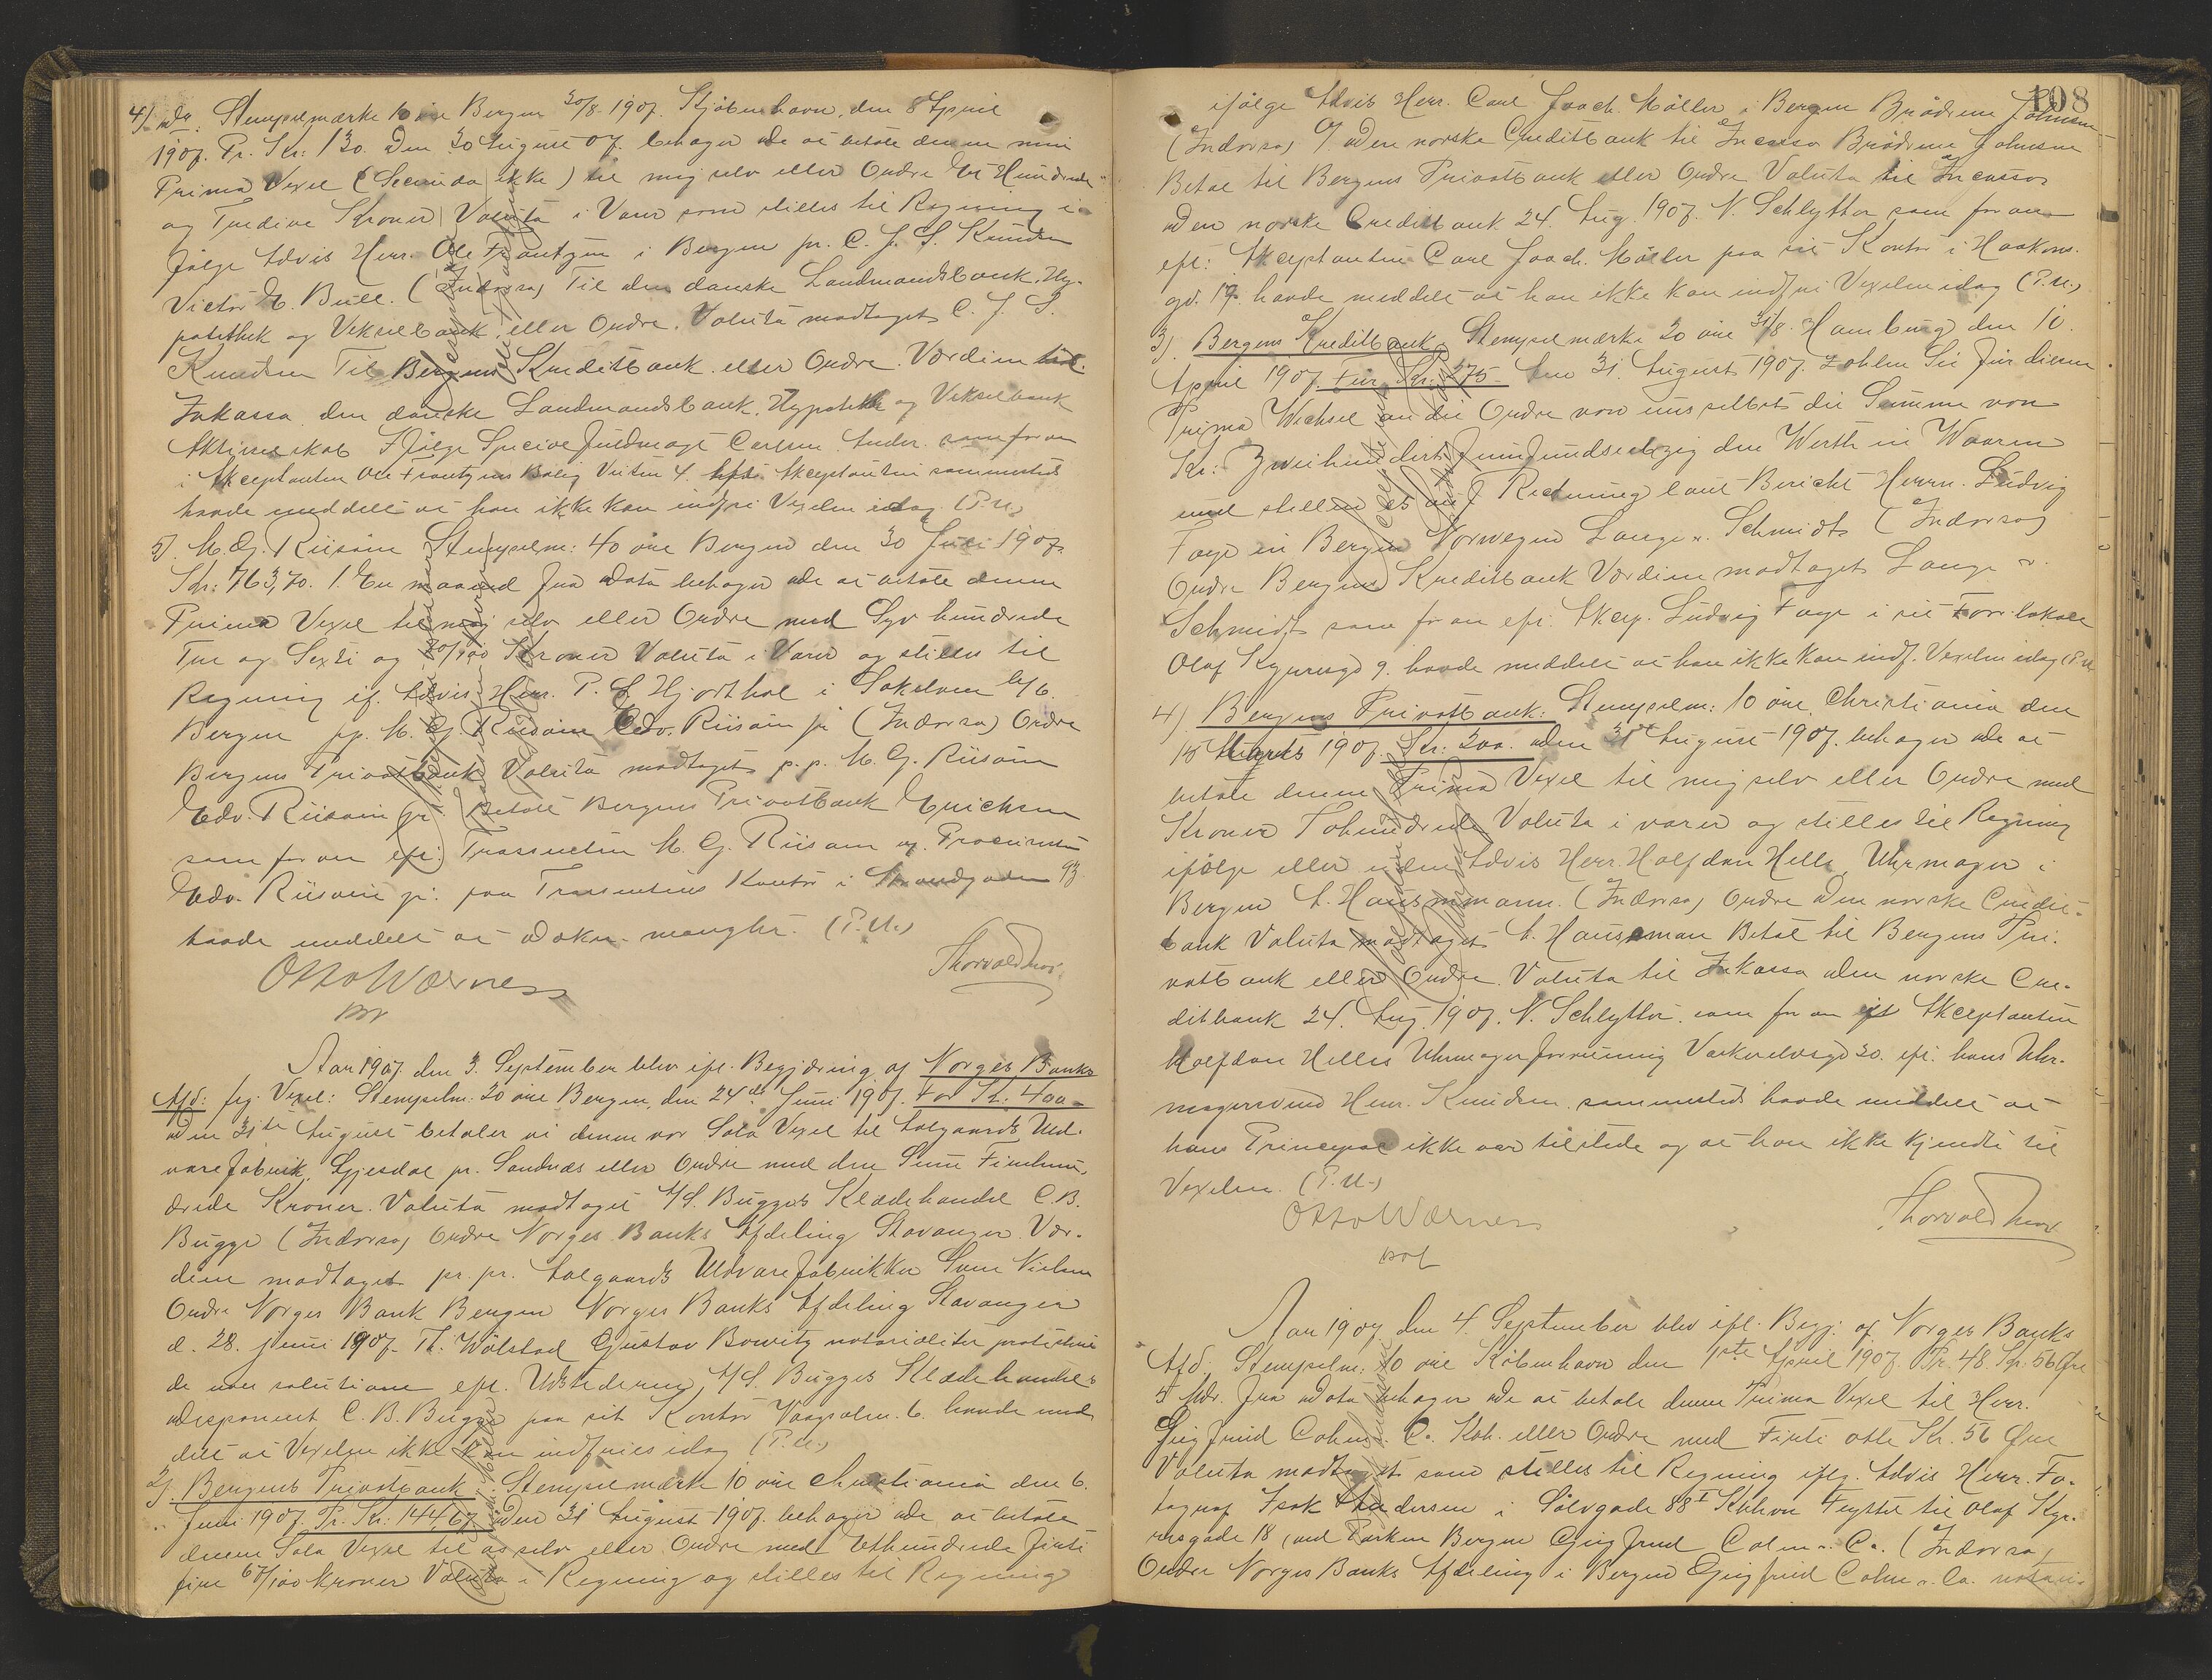 4) do. Stempelmærke 10 øre Bergen 30/8. 1907. Kjøbenhavn, den 8 April
1907. Pr. Kr: 130. Den 30 August 07. behager de at betale denne min
Prima Vexel (Secunda ikke) til mig selv eller Ordre Et Hundrede
og Tredive Kroner Valuta i Varer som stilles til Regning i-
følge Advis Herr. Ole Frantzen i Bergen pr. C. J. S. Knudsen
Victor E. Bull. (Indorso) Til den danske Landmandsbank, Hy-
pothek og Vekselbank eller Ordre. Valuta modtaget C. J. S.
Knudsen Til Bergens Kreditbank eller Ordre. Værdien til
Inkasso den danske Landmandsbank, Hypothek og Vekselbank
Aktieselskab Ifølge Special Fuldmagt Carlsen Ander. som foran
i Akceptanten Ole Frantzens Bolig Veiten 4. Akceptanten sammesteds
havde meddelt at han ikke kan indfri Vexelen idag (P.U.)
5). M. G. Riisøm Stempelm: 40 øre Bergen den 30 Juli 1907
Kr: 763,70. 1. En maaned fra Dato behager de at betale denne
Prima Vexel til mig selv eller Ordre med Syv hundrede
Tre og Sexti og 70/100 Kroner Valuta i Varer og stilles til
Regning if. Advis Herr. P. S. Hjorthol i
Bergen pp. M. G. Riisøm Edv. Riisøm jr (Indorso) Ordre
Bergens Privatbank Valuta modtaget p. p. M. G. Riisøm
Edv. Riisøm jr. Betalt Bergens Privatbank Erichsen
som foran efr. Trassenten M. G. Riisøm v. Procurist
Edv. Riisøm jr. paa Trassentens Kontor i Strandgaden 93
havde meddelt at Dækn. mangler. (P.U.)
Otto Wærness Thorvald
Aar 1907 den 3. September blev ifl. Begjæring af Norges Banks
Afd: flg. Vexel: Stempelm: 20 øre Bergen, den 24de Juni 1907. For Kr: 400-
Den 31te August betaler vi denne vor Sola Vexel til Aalgaards Uld-
varefabrik, Gjesdal pr. Sandnæs eller Ordre med den Sum Firehun-
drede Kroner. Valuta modtaget A/S. Bugges Klædehandel C. B.
Bugge (Indorso) Ordre Norges Banks Afdeling Stavanger Vær-
dien modtaget pr. pr. Aalgaards Uldvarefabrikker Sven Nielsen
Ordre Norges Bank Bergen Norges Banks Afdeling Stavanger
d. 28. juni 1907. Th. Wølstad Gustav Bowitz notarialiter protestere-
de non solutione efr. Udstederens A/S. Bugges Klædehandel's
disponent C. B. Bugge paa sit Kontor Vaagsalm. 6. havde med-
delt at Vexelen ikke kan indfries idag (P.U.)
2). Bergens Privatbank: Stempelmærke 10 øre Christiania den 6.
Juni 1907. Pr. Kr: 144,67 Den 31 August 1907. behager de at betale
denne Sola Vexel til os selv eller Ordre med Ethundrede firti
fire 67/100 Kroner Valuta i Regning og stilles til Regning
108
ifølge Advis Herr. Carl Joach. Møller i Bergen Brødrene Johnsen
(Indorso) Den norske Creditbank til Incasso Brødrene Johnsen
Betal til Bergens Privatbank eller Ordre Valuta til Incasso
Den norske Creditbank 24. Aug. 1907. N. Schlytter som foran
efr: Akceptanten Carl Joach. Møller paa sit Kontor i Haakons-
gd. 17. havde meddelt at han ikke kan indfri Vexelen idag (P.U.)
3). Bergens Kreditbank. Stempelmærke 20 øre 31/8. Hamburg den 10.
April 1907. Für Kr. 275- Am 31. August 1907. zahlen Sie für diesen
Prima Wechsel an die Ordre von uns selbst die Summe von
Kr: Zweihundert fünfundsiebzig den Werth in Waaren
und stellen es auf Rechnung laut Bericht Herrn. Ludvig
Faye in Bergen Norwegen Lange u. Schmidt (Indorso)
Ordre Bergens Kreditbank Værdien modtaget Lange u.
Schmidt som foran efr. Akcep. Ludvig Faye i sit Forr. lokale
Olaf Kyrresgd 9. havde meddelt at han ikke kan indf. Vexelen idag (P.U.)
4) Bergens Privatbank: Stempelm: 10 øre, Christiania den
15 1907. Kr: 200. den 31te August 1907. behager de at
betale denne Prima Vexel til mig selv eller Ordre med
Kroner Tohundrede Valuta i varer og stilles til Regning
ifølge eller uden Advis Herr. Halfdan Helle, Uhrmager i
Bergen A. Hausmmann. (Indorso) Ordre Den norske Credit-
bank Valuta modtaget A. Hausmann Betal til Bergens Pri-
vatbank eller Ordre. Valuta til Inkasso den norske Cre-
ditbank 24. Aug. 1907. N. Schlytter som foran Akceptanten
Halfdan Helles Uhrmagerforretning 30. efr. hans Uhr-
magersvend Herr. Knudsen sammesteds havde meddelt at
hans Principal ikke var tilstede og at han ikke kjendte til
Vexelen. (P.U.)
Otto Wærness Thorvald
Aar 1907 den 4. September blev ifl. Begj: af Norges Banks
Afd: Stempelm: 10 øre København den 1ste April 1907. Pr. 48 Kr: 56 Øre
5 Mdr. fra dato behager de at betale denne Prima Vexel til Herr.
Siegfried Cohn & Co. Kbh. eller Ordre med Firti otte Kr. 56 Øre
Valuta modtaget som stilles til Regning iflg. Advis Herr. Fo-
tograf Isak Andersen i Sølvgade 88 I Kbhvn Flyttet til Olaf Kyr-
resgade 18 ved Parken Bergen Siegfried Cohn & Co. (Indorso)
Ordre Norges Banks Afdeling i Bergen Siegfried Cohn & Co. notari-